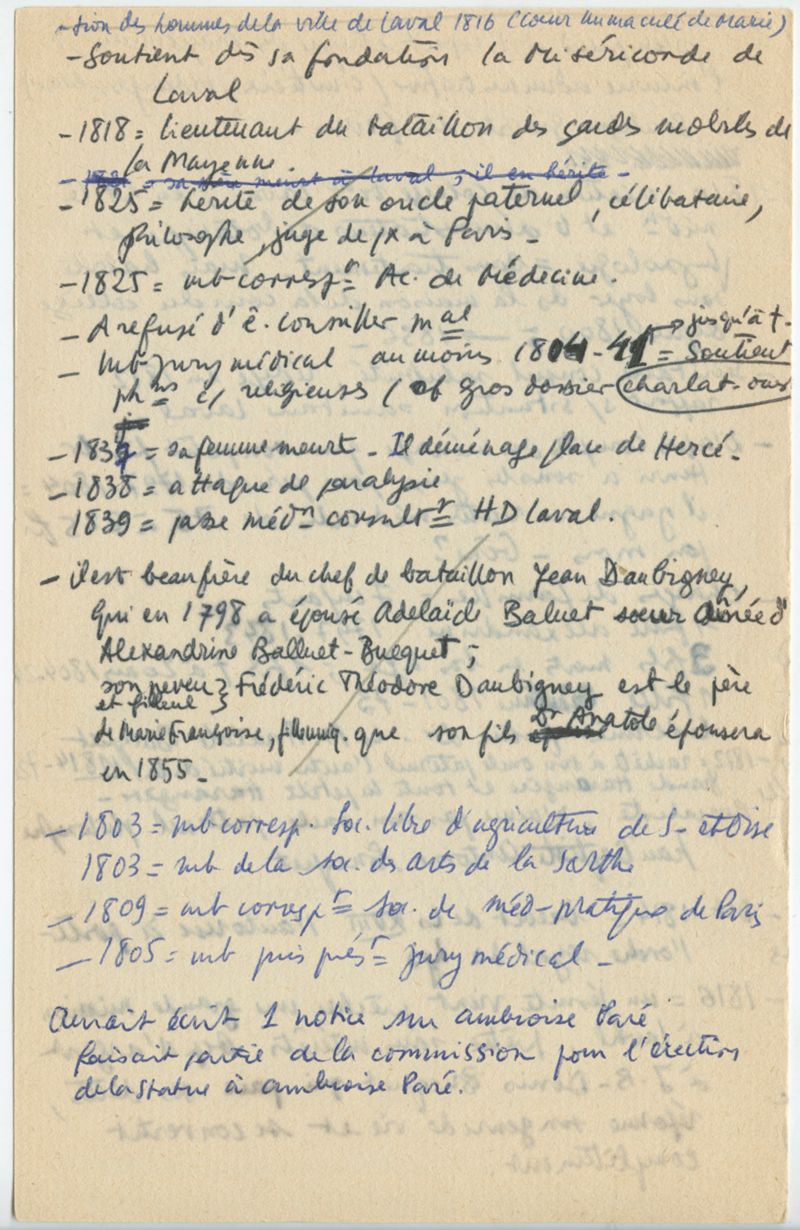 -tion des hommes de la ville de Laval 1816 (Coeur Immaculé de Marie)
- Soutient dès sa fondation la Miséricorde de
Laval
- 1818 = lieutenant du bataillon des gardes mobiles de
la Mayenne
- = sa mère meurt à Laval ; il en hérite -
- 1825 = hérite de son oncle paternel, célibataire,
philosophe, juge de px à Paris -
- 1825 = mb corresp.t Ac. de Médecine.
- A refusé d'ê. conseiller mal
- Mb jury médical au moins 1804-41 → jusqu'à †.
= Soutient
phens c/ religieuses / cf gros dossier charlat. ous
- 1837 = sa femme meurt - Il déménage place de Hercé -
- 1838 = attaque de paralysie
1839 = passe médn consultt HD Laval.
- il est beau frère du chef de bataillon Jean Daubigney,
qui en 1798 a épousé Adelaïde Baluet soeur aînée d'
Alexandrine Balluet-Bucquet ;
son neveu et filleul } Frédéric Théodore Daubigney est le père
de Marie Françoise, fille uniq. que son fils Dr Anatole épousera
en 1855 -
- 1803 = mb corresp. Soc. libre d'agriculture de S- et Oise
1803 = mb de la soc. des arts de la Sarthe
- 1809 = mb correspt = Soc. de méd-pratique de Paris
- 1805 = mb puis prést = jury médical -
Aurait écrit 1 notice sur Ambroise Paré
faisait partie de la commission pour l'érection
de la statue à Ambroise Paré.